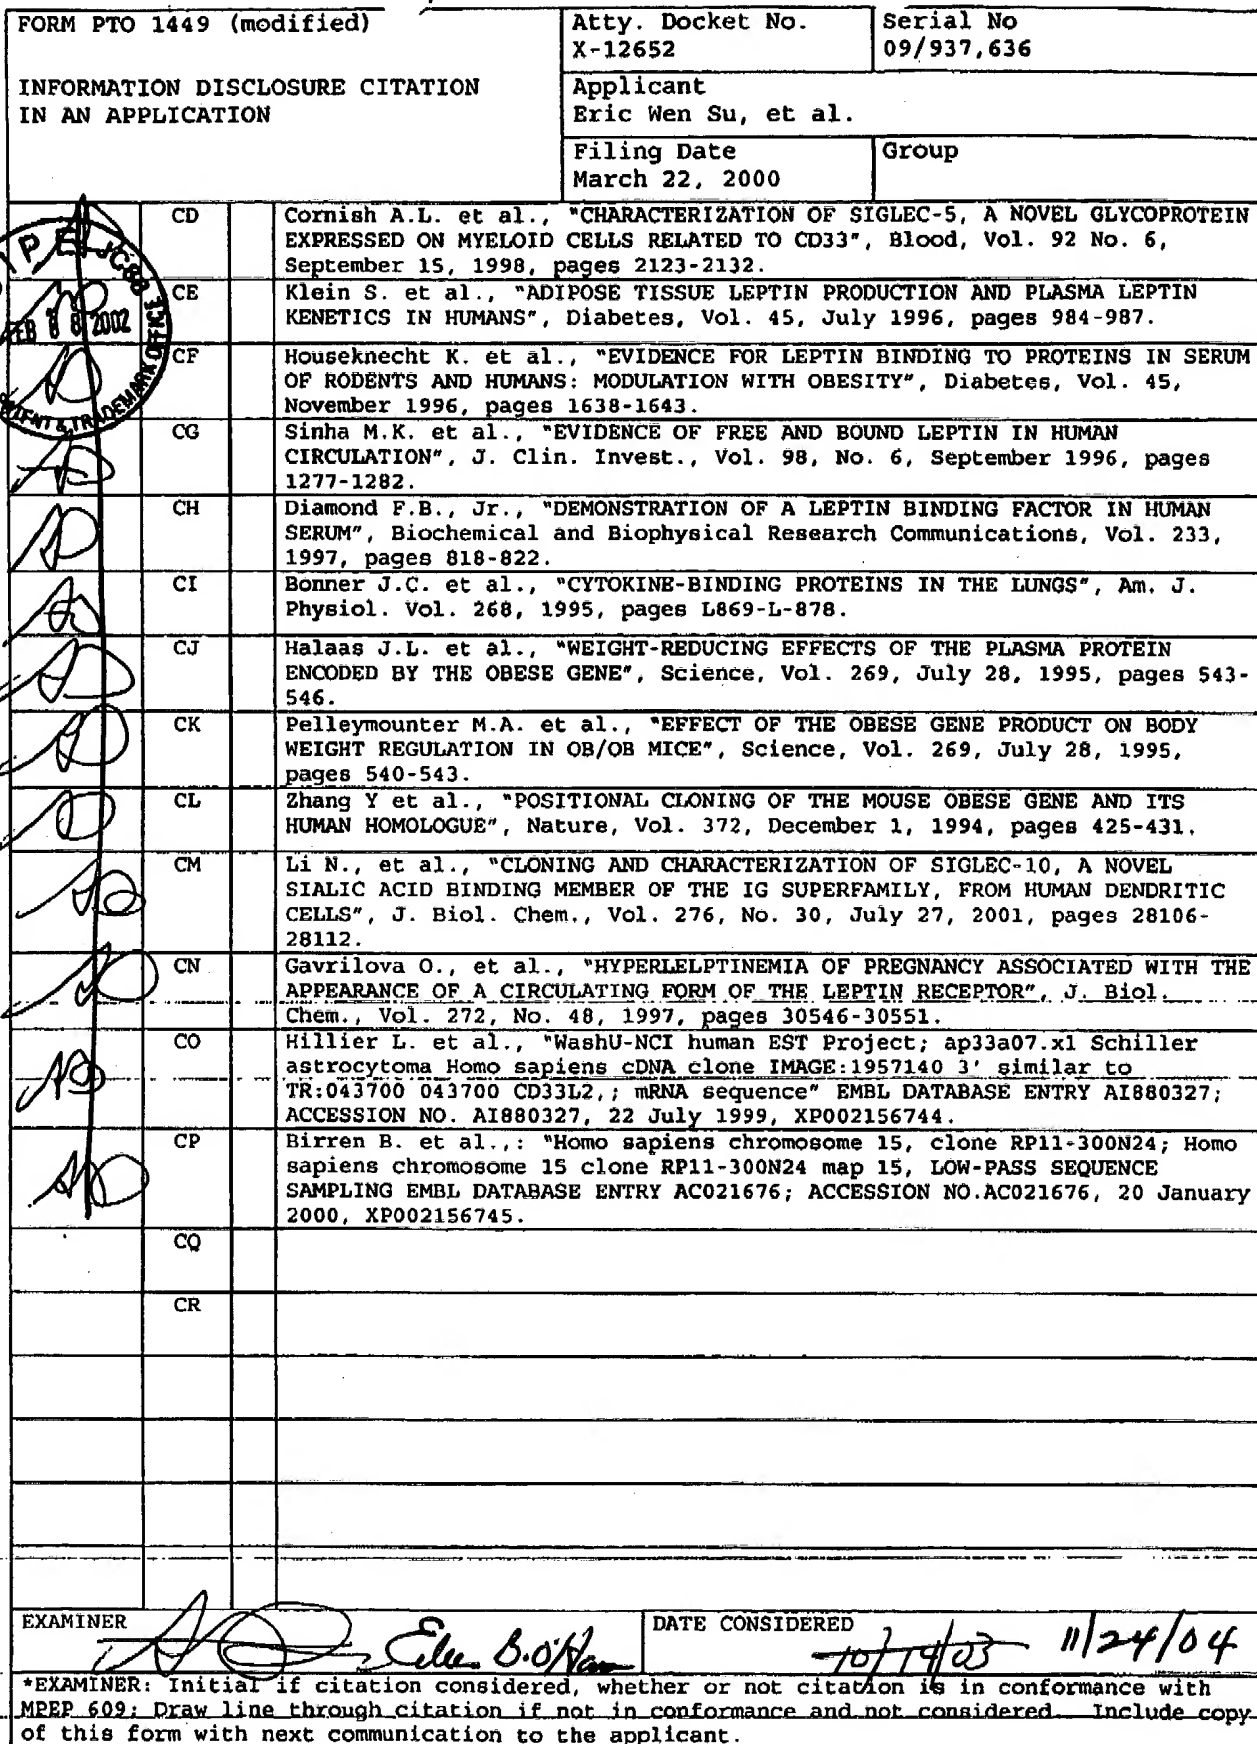 FORM PTO 1449 (modified)
INFORMATION DISCLOSURE CITATION
IN AN APPLICATION
Atty. Docket No.
X-12652
Serial No
09/937,636
Applicant
Eric Wen Su, et al.
Filing Date
March 22, 2000
Group
FEB 8 2002
PATENT & TRADEMARK OFFICE
CD
Cornish A.L. et al., "CHARACTERIZATION OF SIGLEC-5, A NOVEL GLYCOPROTEIN
EXPRESSED ON MYELOID CELLS RELATED TO CD33", Blood, Vol. 92 No. 6,
September 15, 1998, pages 2123-2132.
CE
Klein S. et al., "ADIPOSE TISSUE LEPTIN PRODUCTION AND PLASMA LEPTIN
KENETICS IN HUMANS", Diabetes, Vol. 45, July 1996, pages 984-987.
CF
Houseknecht K. et al., "EVIDENCE FOR LEPTIN BINDING TO PROTEINS IN SERUM
OF RODENTS AND HUMANS: MODULATION WITH OBESITY", Diabetes, Vol. 45,
November 1996, pages 1638-1643.
CG
Sinha M.K. et al., "EVIDENCE OF FREE AND BOUND LEPTIN IN HUMAN
CIRCULATION", J. Clin. Invest., Vol. 98, No. 6, September 1996, pages
1277-1282.
CH
Diamond F.B., Jr., "DEMONSTRATION OF A LEPTIN BINDING FACTOR IN HUMAN
SERUM", Biochemical and Biophysical Research Communications, Vol. 233,
1997, pages 818-822.
CI
Bonner J.C. et al., "CYTOKINE-BINDING PROTEINS IN THE LUNGS", Am. J.
Physiol. Vol. 268, 1995, pages L869-L-878.
CJ
Halaas J.L. et al., "WEIGHT-REDUCING EFFECTS OF THE PLASMA PROTEIN
ENCODED BY THE OBESE GENE", Science, Vol. 269, July 28, 1995, pages 543-
546.
CK
Pelleymounter M.A. et al., "EFFECT OF THE OBESE GENE PRODUCT ON BODY
WEIGHT REGULATION IN OB/OB MICE", Science, Vol. 269, July 28, 1995,
pages 540-543.
CL
Zhang Y et al., "POSITIONAL CLONING OF THE MOUSE OBESE GENE AND ITS
HUMAN HOMOLOGUE", Nature, Vol. 372, December 1, 1994, pages 425-431.
CM
Li N., et al., "CLONING AND CHARACTERIZATION OF SIGLEC-10, A NOVEL
SIALIC ACID BINDING MEMBER OF THE IG SUPERFAMILY, FROM HUMAN DENDRITIC
CELLS", J. Biol. Chem., Vol. 276, No. 30, July 27, 2001, pages 28106-
28112.
CN
Gavrilova O., et al., "HYPERLELPTINEMIA OF PREGNANCY ASSOCIATED WITH THE
APPEARANCE OF A CIRCULATING FORM OF THE LEPTIN RECEPTOR", J. Biol.
Chem., Vol. 272, No. 48, 1997, pages 30546-30551.
CO
Hillier L. et al., "WashU-NCI human EST Project; ap33a07.x1 Schiller
astrocytoma Homo sapiens cDNA clone IMAGE:1957140 3' similar to
TR:043700 043700 CD33L2,; mRNA sequence" EMBL DATABASE ENTRY AI880327;
ACCESSION NO. AI880327, 22 July 1999, XP002156744.
CP
Birren B. et al.,: "Homo sapiens chromosome 15, clone RP11-300N24; Homo
sapiens chromosome 15 clone RP11-300N24 map 15, LOW-PASS SEQUENCE
SAMPLING EMBL DATABASE ENTRY AC021676; ACCESSION NO.AC021676, 20 January
2000, XP002156745.
CQ
CR
EXAMINER
DATE CONSIDERED
10/14/03 11/24/04
*EXAMINER: Initial if citation considered, whether or not citation is in conformance with
MPEP 609; Draw line through citation if not in conformance and not considered. Include copy
of this form with next communication to the applicant.